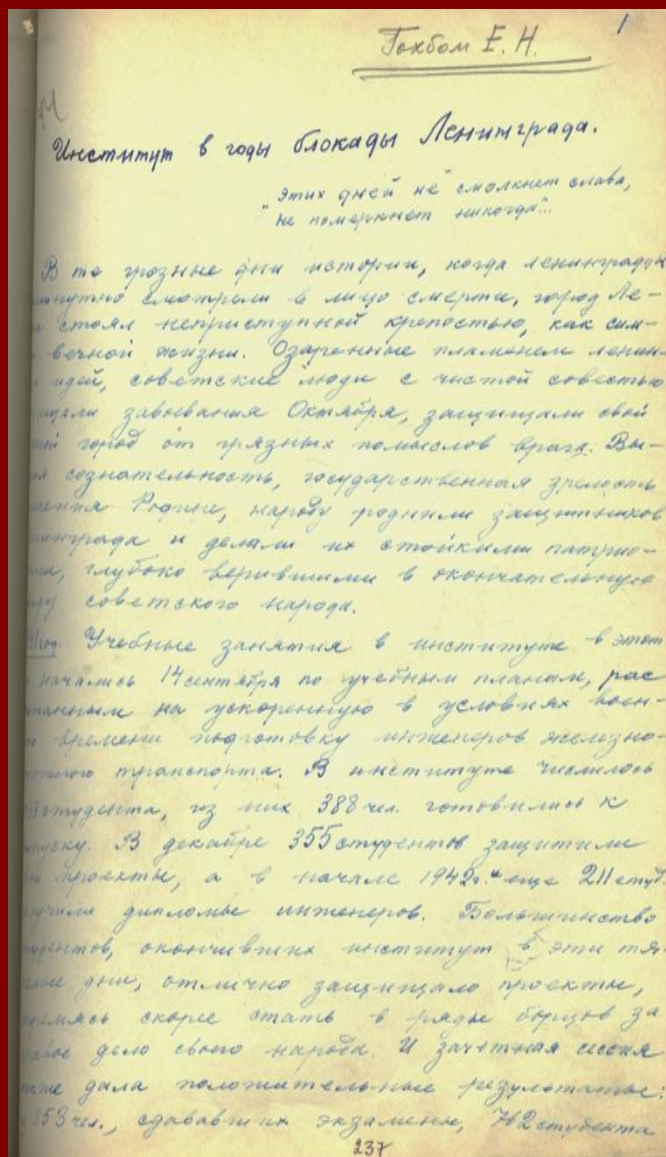 1
Гохбом Е. Н.
Институт в годы блокады Ленинграда.
„Этих дней не смолкнет слава,
не померкнет никогда"..
В те грозные дни истории, когда ленинградцы
смотрели в лицо смерти, город Ле-
стоял неприступной крепостью, как сим-
вечной жизни. Озаренные пламенем ленин-
идей, советские люди с чистой совестью
завоевания Октября, защищали свой
город от грязных помыслов врага. Вы-
сознательность, государственная зрелость
Родине, народу роднили защитников
и делали их стойкими патрио-
глубоко верившими в окончательную
советского народа.
Учебные занятия в институте в этом
начались 14 сентября по учебным планам, рас
на ускоренную в условиях воен-
времени подготовку инженеров железно-
транспорта. В институте числилось
студента, из них 388 чел. готовились к
В декабре 355 студентов защитили
проекты, а в начале 1942г. еще 211 студ.
дипломы инженеров. Большинство
окончивших институт в эти тя-
дни, отлично защищало проекты,
скорее стать в ряды борцов за
дело своего народа. И зачетная сессия
дала положительные результаты:
853 чел., сдававших экзамены, 742 студента
237